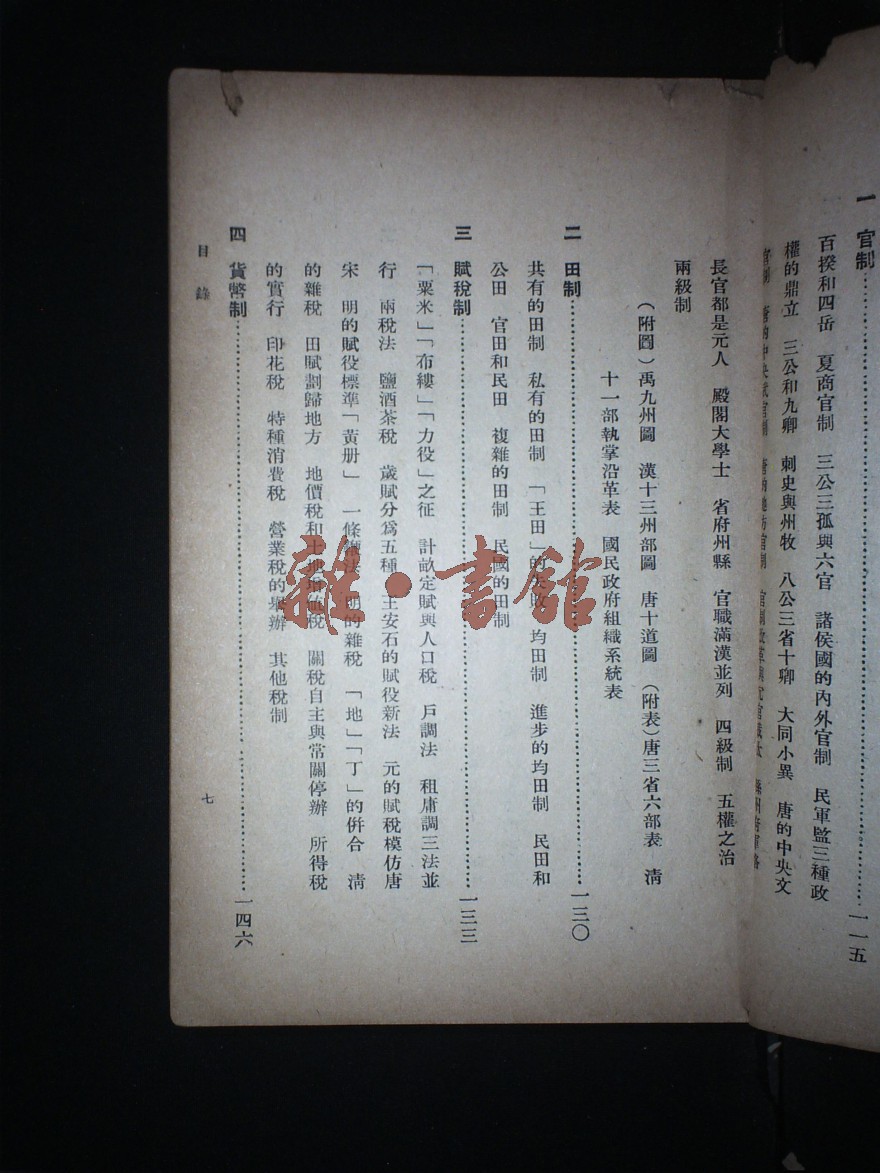 一 官制……一一五
百揆和四岳 夏商官制 三公三孤與六官 諸侯國的內外官制 民軍監三種政
權的鼎立 三公和九卿 刺史與州牧 八公三省十卿 大同小異 唐的中央文
官制 唐的中央武官制 唐的地方官制
長官都是元人 殿閣大學士 省府州縣 官職滿漢並列 四級制 五權之治
兩級制
(附圖)禹九州圖 漢十三州部圖 唐十道圖 (附表)唐三省六部表 淸
十一部執掌沿革表 國民政府組織系統表
二 田制……一三〇
共有的田制 私有的田制 「王田」的失敗 均田制 進步的均田制 民田和
公田 官田和民田 複雜的田制 民國的田制
三 賦稅制……一三三
「粟米」「布縷」「力役」之征 計畝定賦與人口稅 戶調法 租庸調三法並
行 兩稅法 鹽酒茶稅 歲賦分爲五種 王安石的賦役新法 元的賦稅模仿唐
宋 明的賦役標準「黃册」 一條鞭法 明的雜稅 「地」「丁」的併合 淸
的雜稅 田賦劃歸地方 地價稅和土地增值稅 關稅自主與常關停辦 所得稅
的實行 印花稅 特種消費稅 營業稅的舉辦 其他稅制
四 貨幣制……一四六
目錄
七
雜·書館